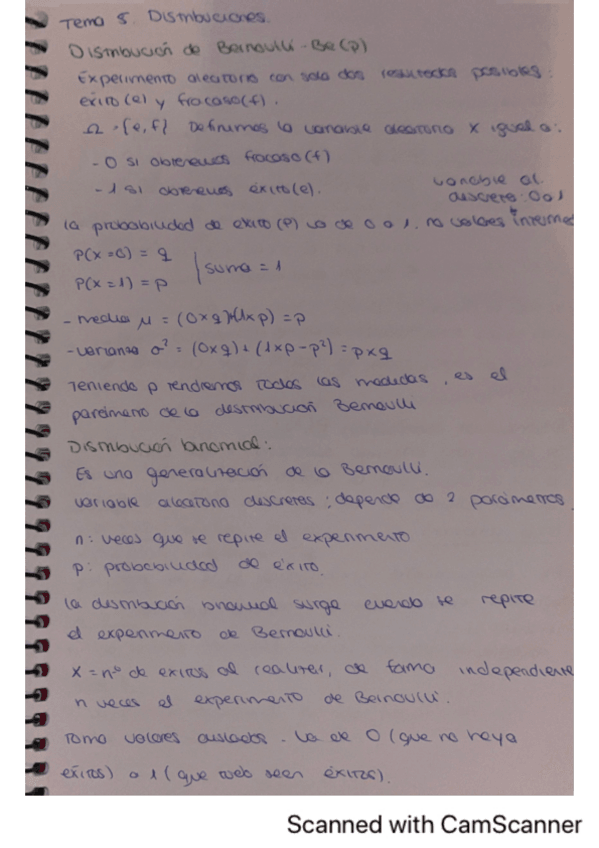 Tema 5. Distribuciones.
Distribución de Bernoulli - Be(p)
Experimento aleatorio con solo dos resultados posibles:
éxito (e) y fracaso (f).
Ω = {e, f} Definimos la variable aleatoria X igual a:
- 0 si obtenemos fracaso (f)
- 1 si obtenemos éxito (e).
variable al.
discreta: 0 o 1
La probabilidad de éxito (P) va de 0 a 1, no valores intermed
P(X=0) = q
P(X=1) = p
suma = 1
- media μ = (0×q)+(1×p) = p
- varianza σ² = (0×q) + (1×p - p²) = p×q
Teniendo p tendremos todas las medidas, es el
parámetro de la distribución Bernoulli
Distribución binomial:
Es una generalización de la Bernoulli.
Variable aleatoria discretas: depende de 2 parámetros.
n: veces que se repite el experimento
p: probabilidad de éxito.
La distribución binomial surge cuando se repite
el experimento de Bernoulli.
X = nº de éxitos al realizar, de forma independiente
n veces el experimento de Bernoulli.
Toma valores aislados. Va de 0 (que no haya
éxitos) a 1 (que sean éxitos).
Scanned with CamScanner